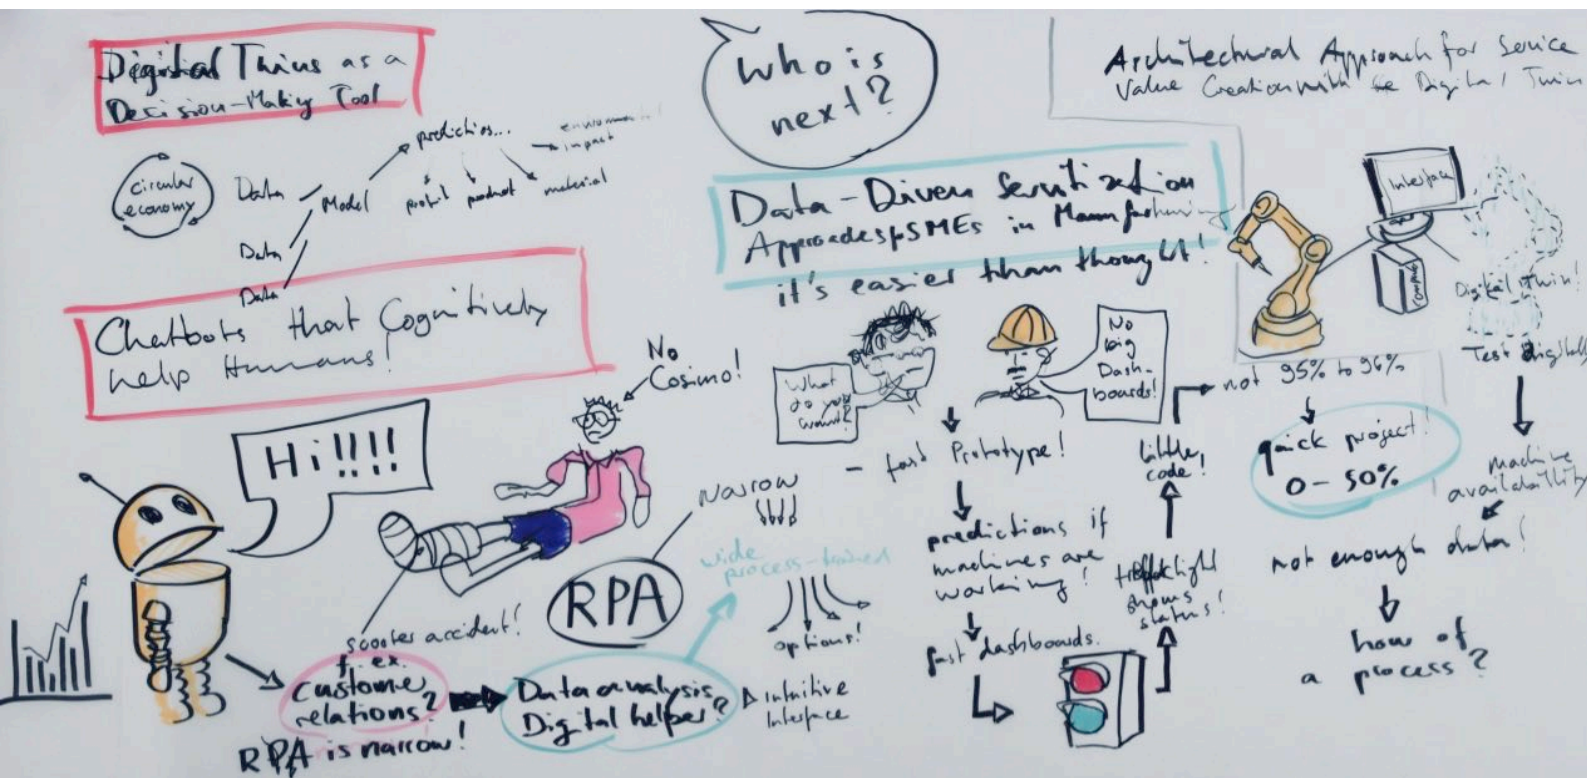 Digital Twins as a
Decision-Making Tool
circular
economy
Data
Data
Data
Model
predictions...
profit
product
material
impact
Chatbots that Cognitively
help Humans!
Hi!!!!
No
Cosimo!
scooter accident!
f. ex.
Customer
relations?
RPA is narrow!
Data analysis
Digital helper?
RPA
Narrow
wide
process-trained
options!
intuitive
Interface
Who is
next?
Data-Driven Servitization
Approaches f SMEs in Manufacturing
it's easier than thought!
What
do you
want?
No
big
Dash-
boards!
- fast Prototype!
predictions if
machines are
working!
fast dashboards.
traffic light
shows
status!
little
code!
not 95% to 96%
quick project!
0-50%
Architectural Approach for Service
Value Creation with Digital Twin
Interface
Digital Twin!
Test digitally
machine
availability
not enough data!
how of
a process?